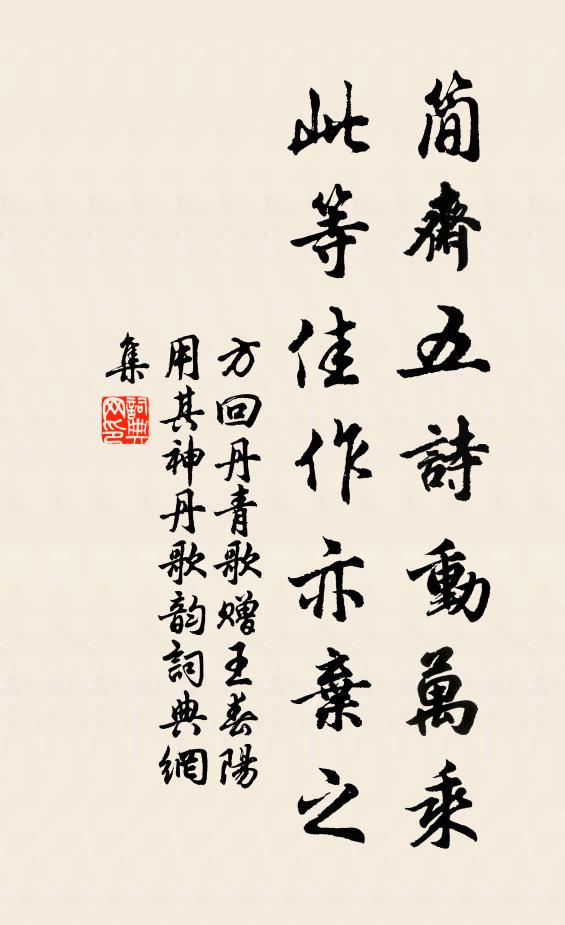 简齋五詩動萬乘
此等佳作亦棄之
方回丹青歌赠王春陽
用其神丹歌韵詞典網
集
詞典网印